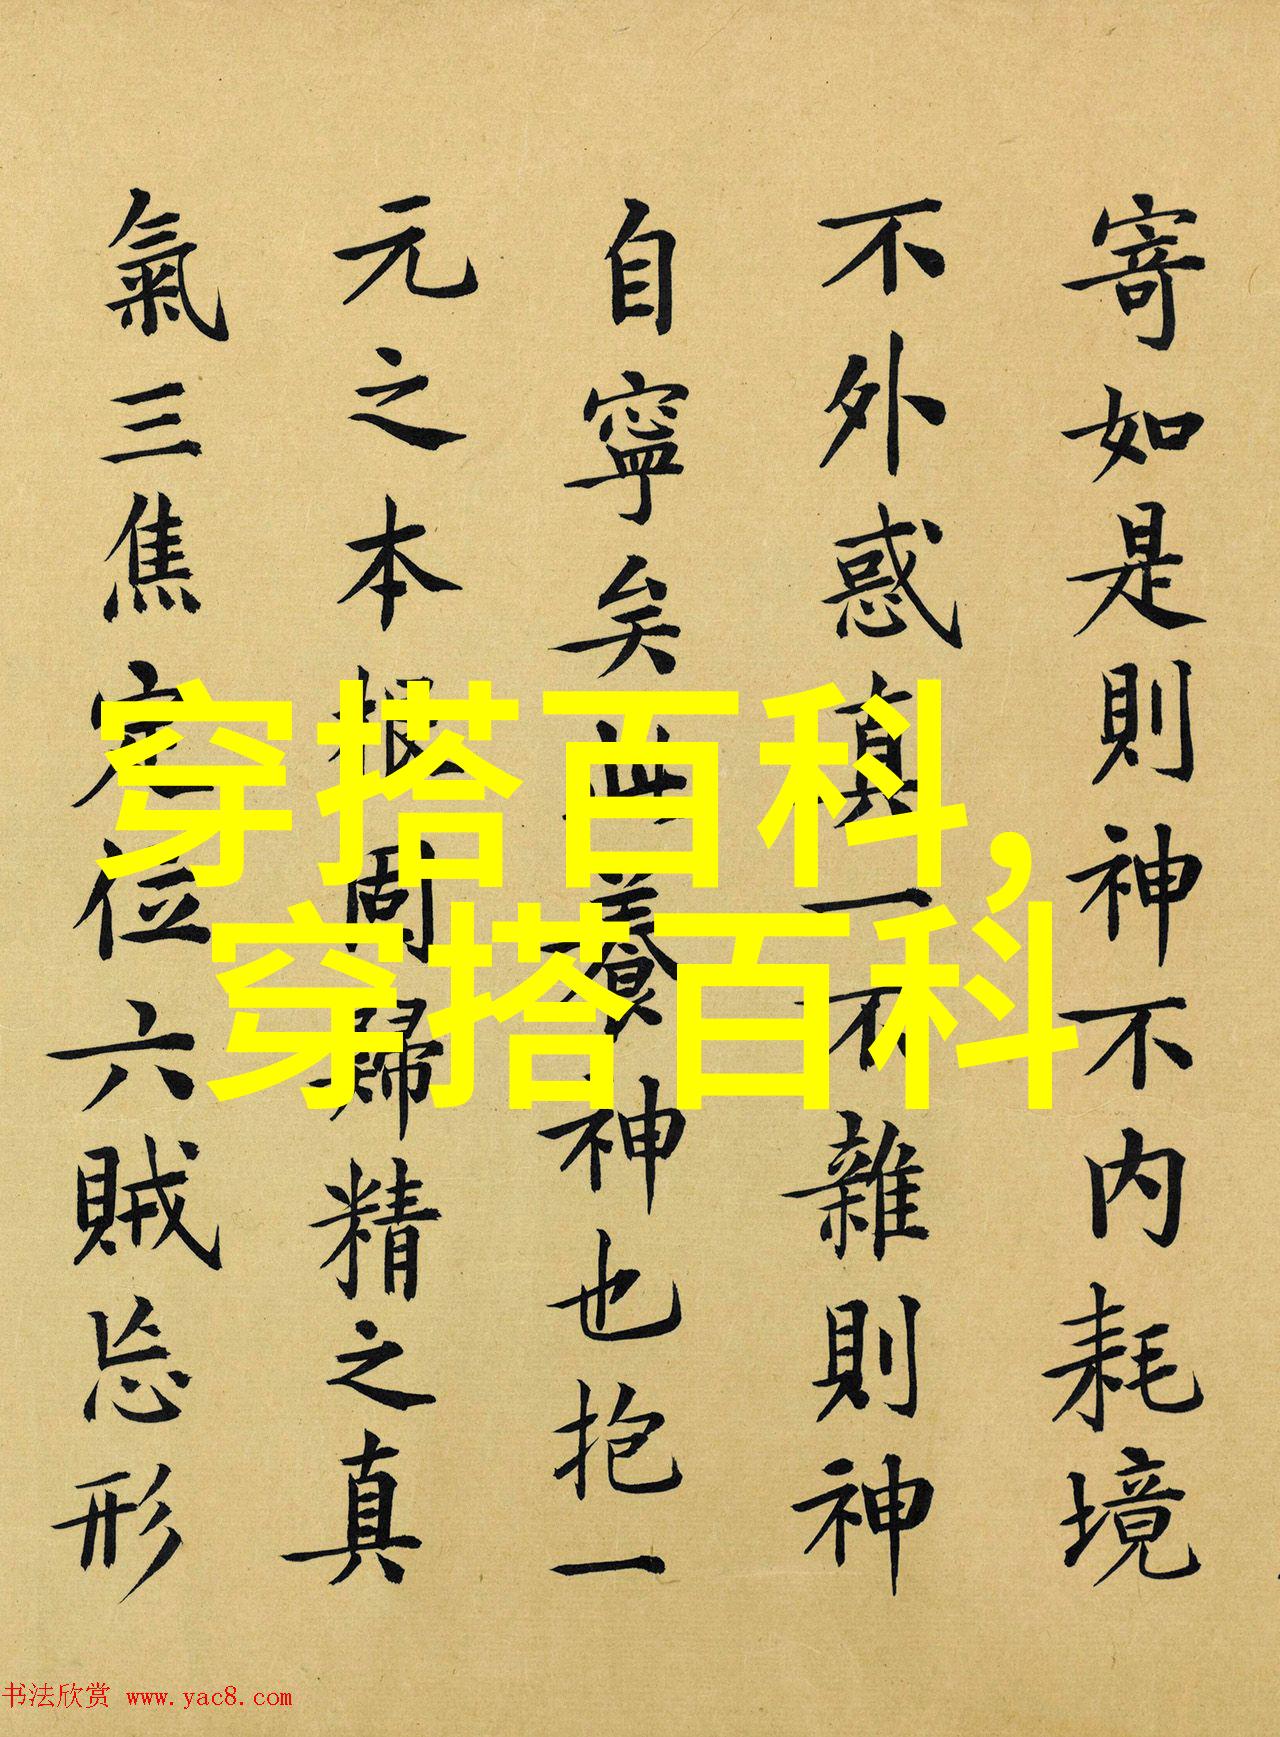 寄如是則神不内耗境
不外惑真一不雜則神
自寧矣此養神也抱一
元之本根固歸精之真
氣三焦定位六賊忘形
穿搭百科,
穿搭百科
书法欣赏 www.yac8.com